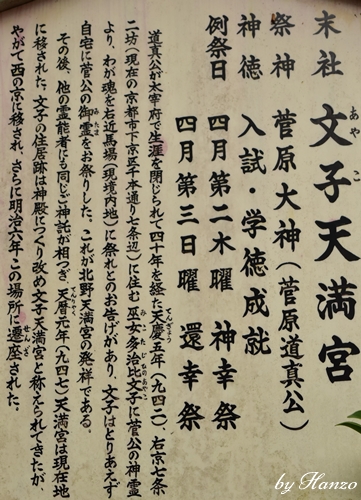 末社 文子天満宮
あやこ
祭神 菅原大神(菅原道真公)
神徳 入試・学徳成就
例祭日 四月第二木曜 神幸祭
四月第三日曜 還幸祭
道真公が太宰府で生涯を閉じられて四十年を経た天慶五年(九四二)、右京七条
てんぎょう
二坊(現在の京都市下京区千本通り七条辺)に住む巫女多治比文子に菅公の神霊
みこたじひのあやこ
より、わが魂を右近馬場(現境内地)に祭れとのお告げがあり、文子はとりあえず
自宅に菅公の御霊をお祭りした。これが北野天満宮の発祥である。
みたま
その後、他の霊能者にも同じご神託が相つぎ、天暦元年(九四七)天満宮は現在地
てんりゃく
に移された。文子の住居跡は神殿につくり改め文子天満宮と称えられてきたが、
やがて西の京に移され、さらに明治六年、この場所に遷座された。
せんざ
by Hanzo